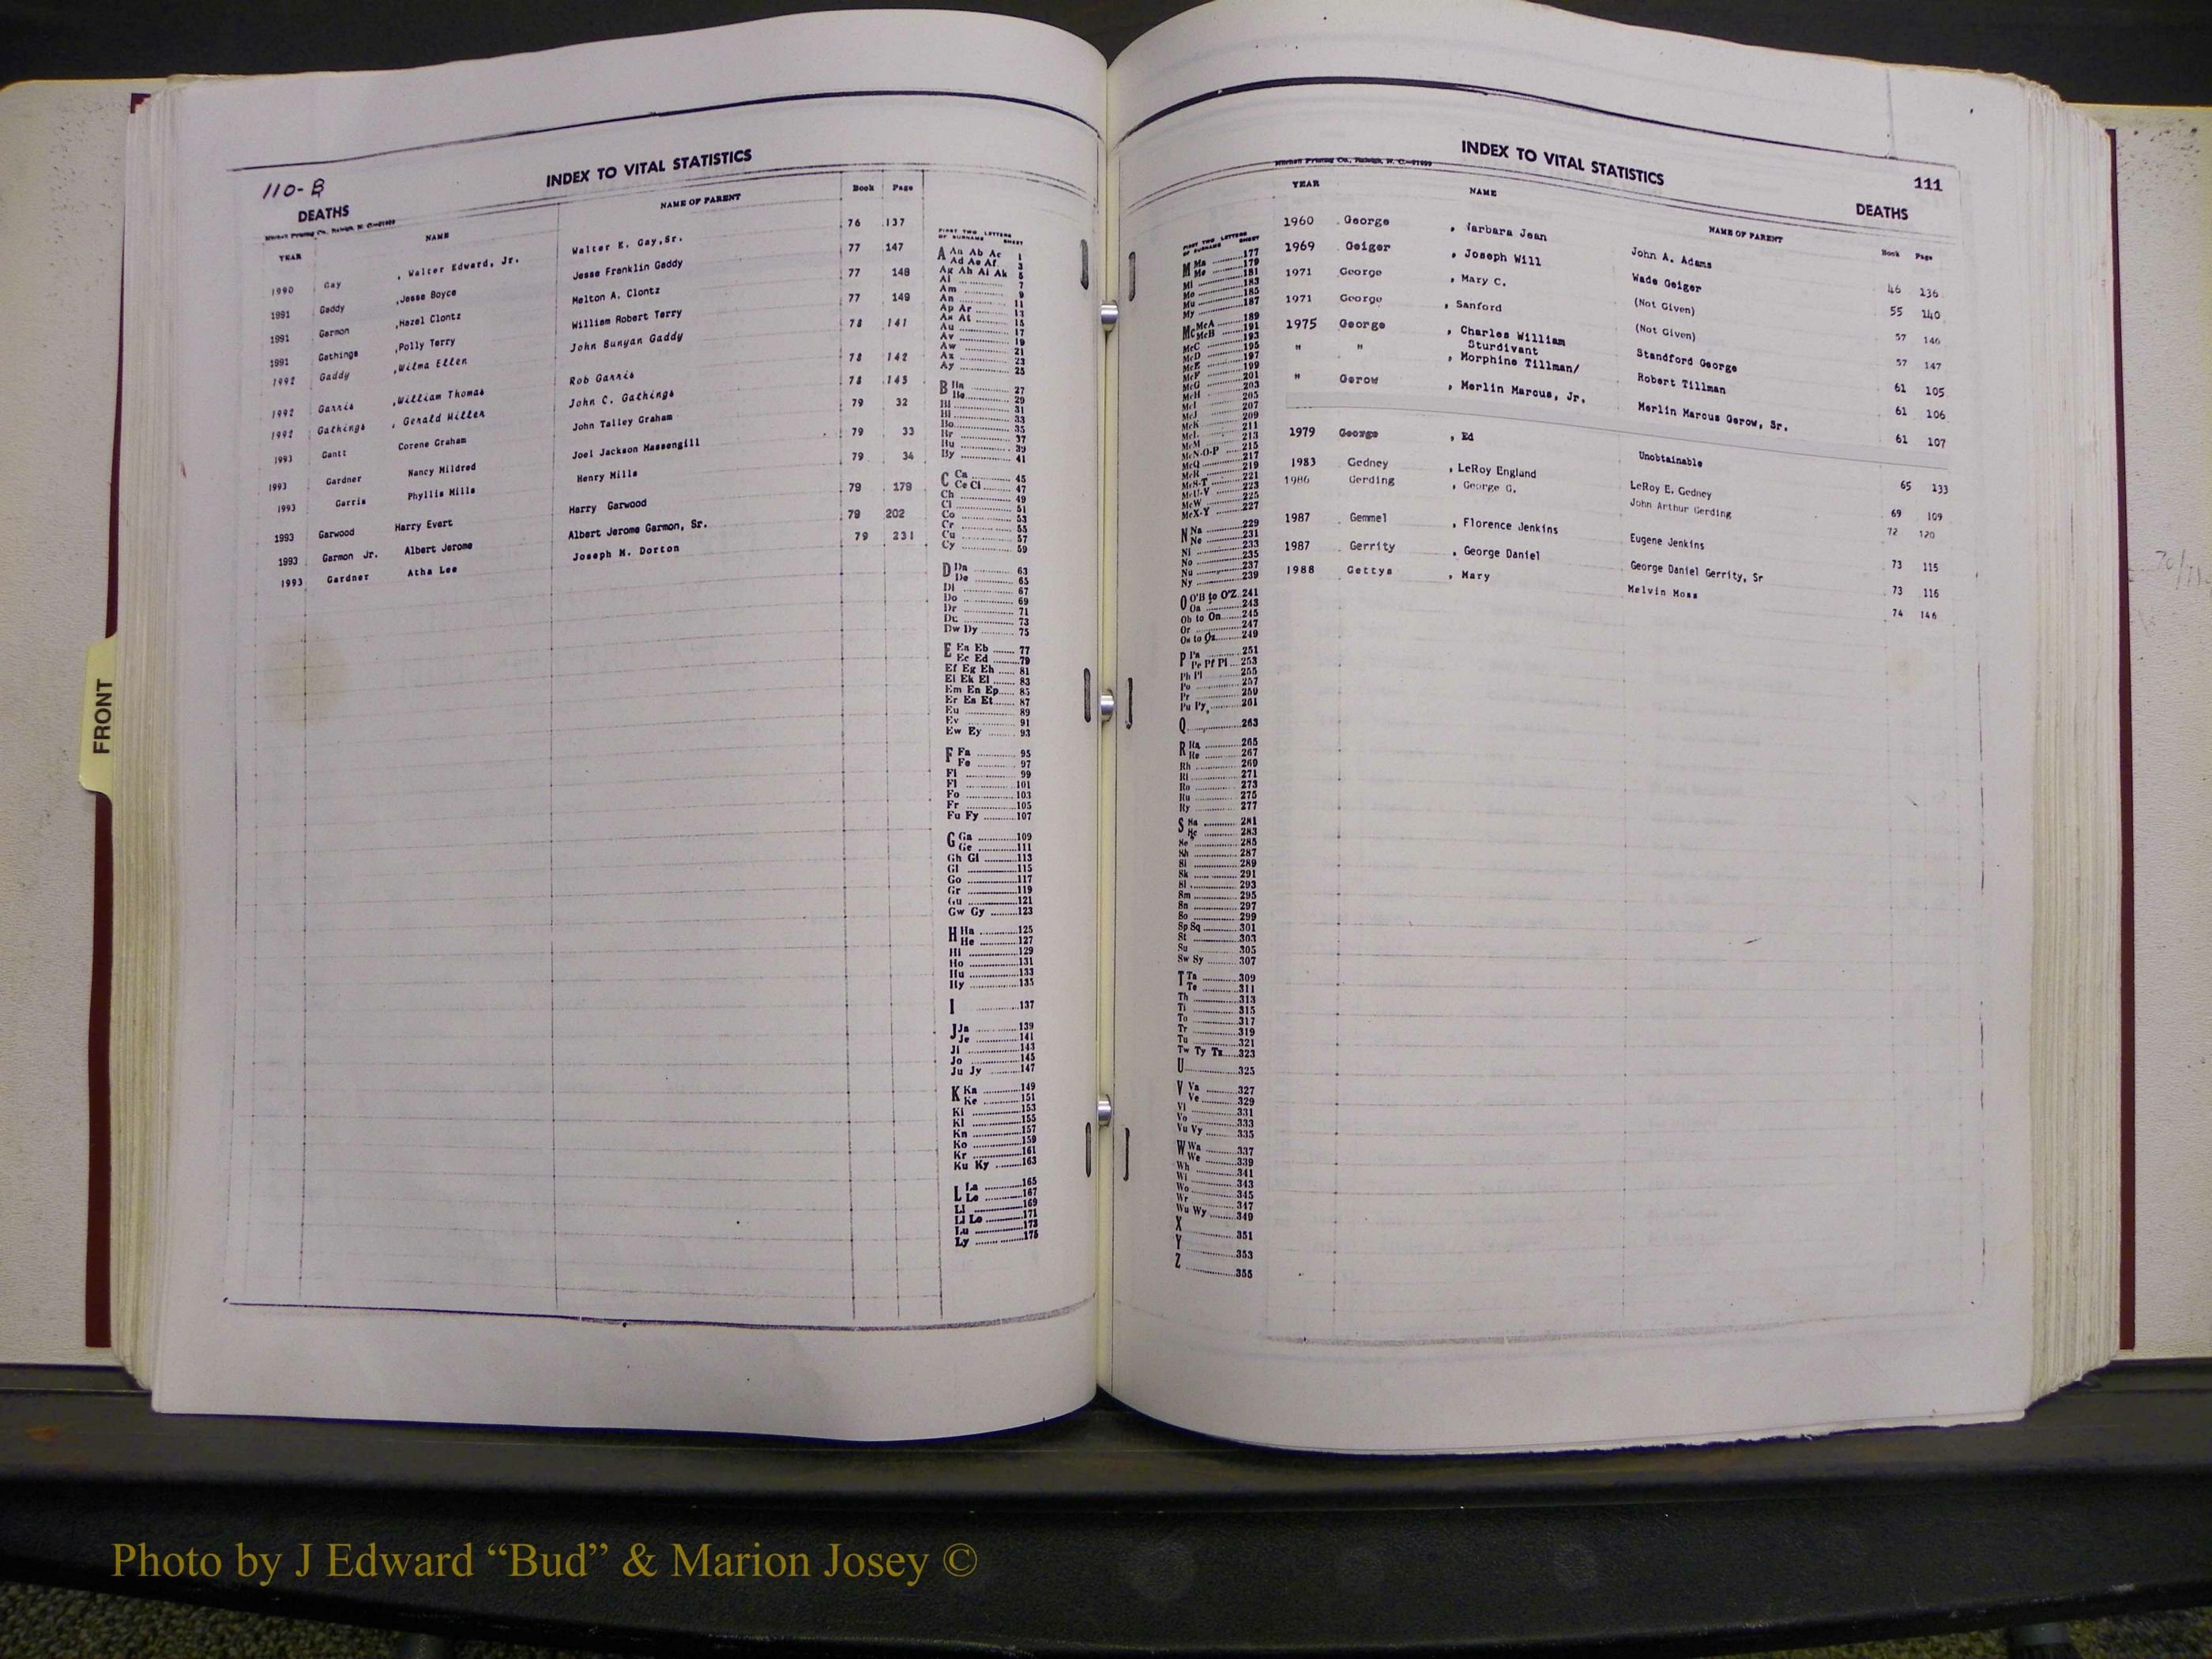 110-B
INDEX TO VITAL STATISTICS
DEATHS
Mitchell Printing Co., Raleigh, N. C.
YEAR NAME NAME OF PARENT Book Page
1990 Gay , Walter Edward, Jr. Walter E. Gay,Sr. 76 137
1991 Gaddy ,Jesse Boyce Jesse Franklin Gaddy 77 147
1991 Garmon ,Hazel Clontz Melton A. Clontz 77 148
1991 Gathings ,Polly Terry William Robert Terry 77 149
1992 Gaddy ,Wilma Ellen John Bunyan Gaddy 78 141
1992 Garris ,William Thomas Rob Garris 78 142
1992 Gathings , Gerald Miller John C. Gathings 78 145
1993 Gantt Corene Graham John Talley Graham 79 32
1993 Gardner Nancy Mildred Joel Jackson Massengill 79 33
1993 Garris Phyllis Mills Henry Mills 79 34
1993 Garwood Harry Evert Harry Garwood 79 179
1993 Garmon Jr. Albert Jerome Albert Jerome Garmon, Sr. 79 202
1993 Gardner Atha Lee Joseph M. Dorton 79 231
FIRST TWO LETTERS
OF SURNAME SHEET
A Aa Ab Ac 1
Ad Ae Af 3
Ag Ah Ai Ak 5
Al 7
Am 9
An 11
Ap Ar 13
As At 15
Au 17
Av 19
Aw 21
Ax 23
Ay 25
B Ba 27
Be 29
Bi 31
Bl 33
Bo 35
Br 37
Bu 39
By 41
C Ca 45
Ce Ci 47
Ch 49
Cl 51
Co 53
Cr 55
Cu 57
Cy 59
D Da 63
De 65
Di 67
Do 69
Dr 71
Du 73
Dw Dy 75
E Ea Eb 77
Ec Ed 79
Ef Eg Eh 81
Ei Ek El 83
Em En Ep 85
Er Es Et 87
Eu 89
Ev 91
Ew Ey 93
F Fa 95
Fe 97
Fi 99
Fl 101
Fo 103
Fr 105
Fu Fy 107
G Ga 109
Ge 111
Gh Gi 113
Gl 115
Go 117
Gr 119
Gu 121
Gw Gy 123
H Ha 125
He 127
Hi 129
Ho 131
Hu 133
Hy 135
I 137
J Ja 139
Je 141
Ji 143
Jo 145
Ju Jy 147
K Ka 149
Ke 151
Ki 153
Kl 155
Kn 157
Ko 159
Kr 161
Ku Ky 163
L La 165
Le 167
Li 169
Ll Lo 171
Lu 173
Ly 175
INDEX TO VITAL STATISTICS
111
Mitchell Printing Co., Raleigh, N. C.
DEATHS
YEAR NAME NAME OF PARENT Book Page
1960 George , Barbara Jean John A. Adams 46 136
1969 Geiger , Joseph Will Wade Geiger 55 140
1971 George , Mary C. (Not Given) 57 146
1971 George , Sanford (Not Given) 57 147
1975 George , Charles William Sturdivant Standford George 61 105
" " , Morphine Tillman/ Robert Tillman 61 106
" Gerow , Merlin Marcus, Jr. Merlin Marcus Gerow, Sr. 61 107
1979 George , Ed Unobtainable 65 133
1983 Gedney , LeRoy England LeRoy E. Gedney 69 109
1986 Gerding , George G. John Arthur Gerding 72 120
1987 Gemmel , Florence Jenkins Eugene Jenkins 73 115
1987 Gerrity , George Daniel George Daniel Gerrity, Sr 73 116
1988 Gettys , Mary Melvin Moss 74 146
FIRST TWO LETTERS
OF SURNAME SHEET
M Ma 177
Me 179
Mi 181
Mo 183
Mu 185
My 187
Mc McA 189
McB 191
McC 193
McD 195
McE 197
McF 199
McG 201
McH 203
McI 205
McJ 207
McK 209
McL 211
McM 213
McN-O-P 215
McQ 217
McR 219
McS-T 221
McU-V 223
McW 225
McX-Y 227
N Na 229
Ne 231
Ni 233
No 235
Nu 237
Ny 239
O O'B to O'Z 241
Oa 243
Ob to On 245
Or 247
Os to Oz 249
P Pa 251
Pe Pf Pi 253
Ph Pl 255
Po 257
Pr 259
Pu Py 261
Q 263
R Ra 265
Re 267
Rh 269
Ri 271
Ro 273
Ru 275
Ry 277
S Sa 281
Sc 283
Se 285
Sh 287
Si 289
Sk 291
Sl 293
Sm 295
Sn 297
So 299
Sp Sq 301
St 303
Su 305
Sw Sy 307
T Ta 309
Te 311
Th 313
Ti 315
To 317
Tr 319
Tu 321
Tw Ty Tz 323
U 325
V Va 327
Ve 329
Vi 331
Vo 333
Vu Vy 335
W Wa 337
We 339
Wh 341
Wi 343
Wo 345
Wr 347
Wu Wy 349
X 351
Y 353
Z 355
FRONT
Photo by J Edward “Bud” & Marion Josey ©